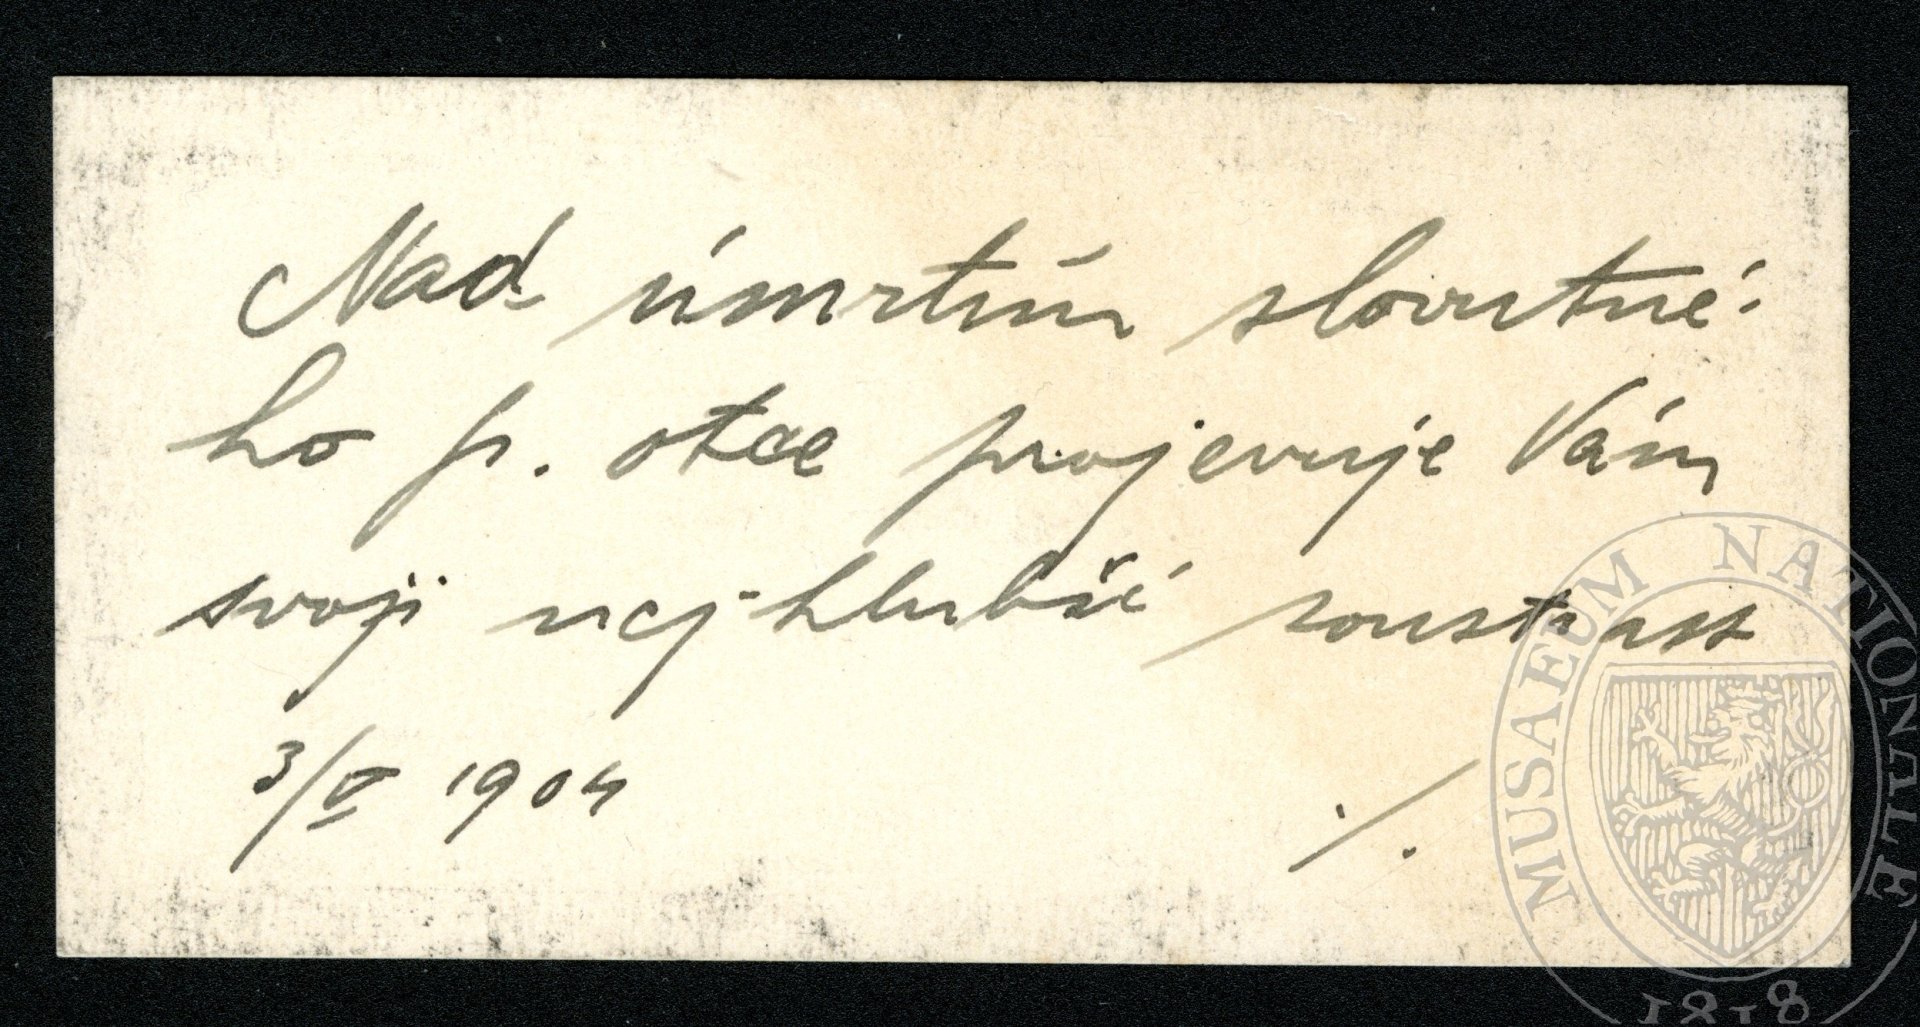 Nad úmrtím slovutné-
ho p. otce projevuje Vám
svoji nejhlubší soustrast
3/V 1904
./.
MUSAEUM NATIONALE
1818